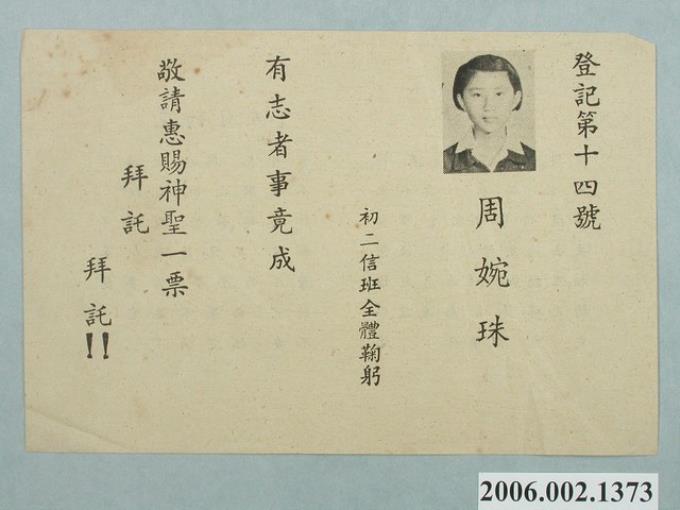 登記第十四號
周婉珠
初二信班全體鞠躬
有志者事竟成
敬請惠賜神聖一票
拜託
拜託!!
2006.002.1373